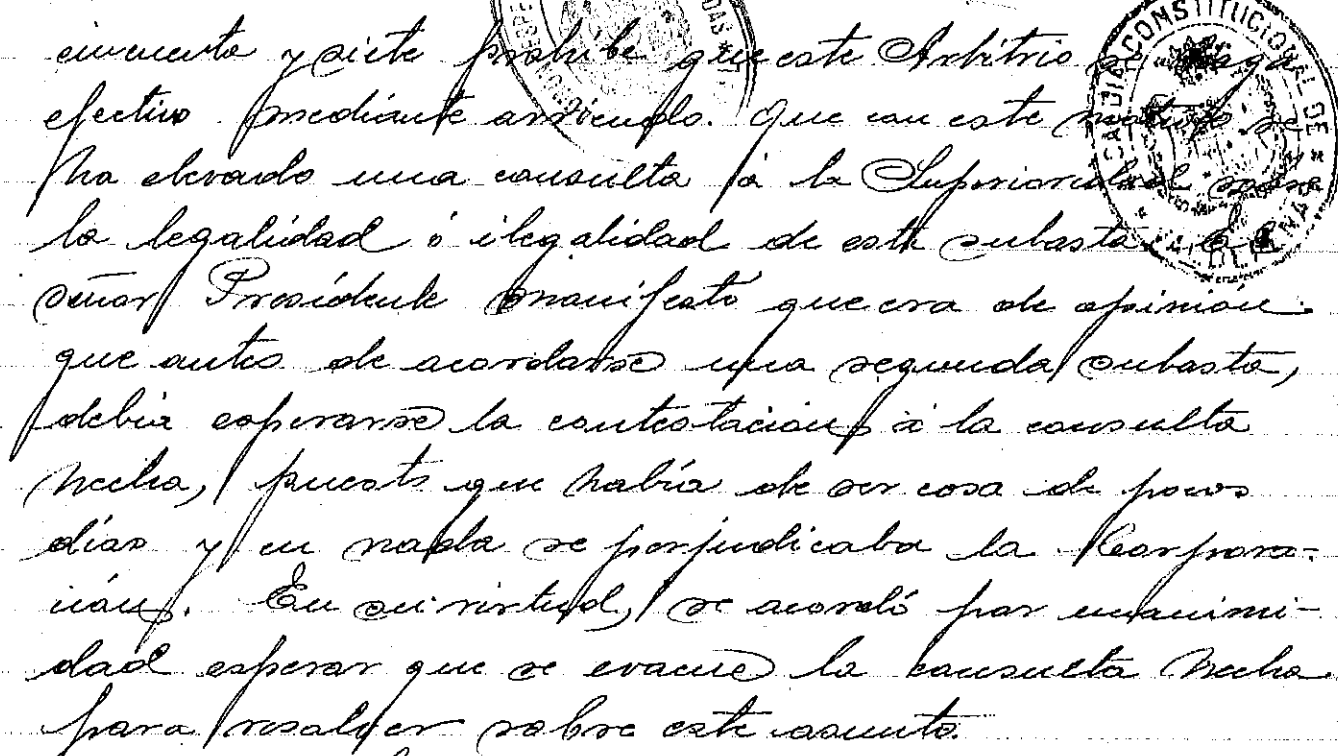 cincuenta y siete prohibe que este Arbitrio se haga
efectivo mediante arriendo. Que con este motivo se
ha elevado una consulta á la Superioridad sobre
la legalidad ó ilegalidad de esta subasta. El
señor Presidente manifestó que era de opinión
que antes de acordarse una segunda subasta,
debia esperarse la contestación á la consulta
hecha, puesto que había de ser cosa de pocos
días y en nada se perjudicaba la Corpora-
ción. En su virtud, se acordó por unanimi-
dad esperar que se evacue la consulta hecha
para resolver sobre este asunto.
CONSTITUCIONAL DE